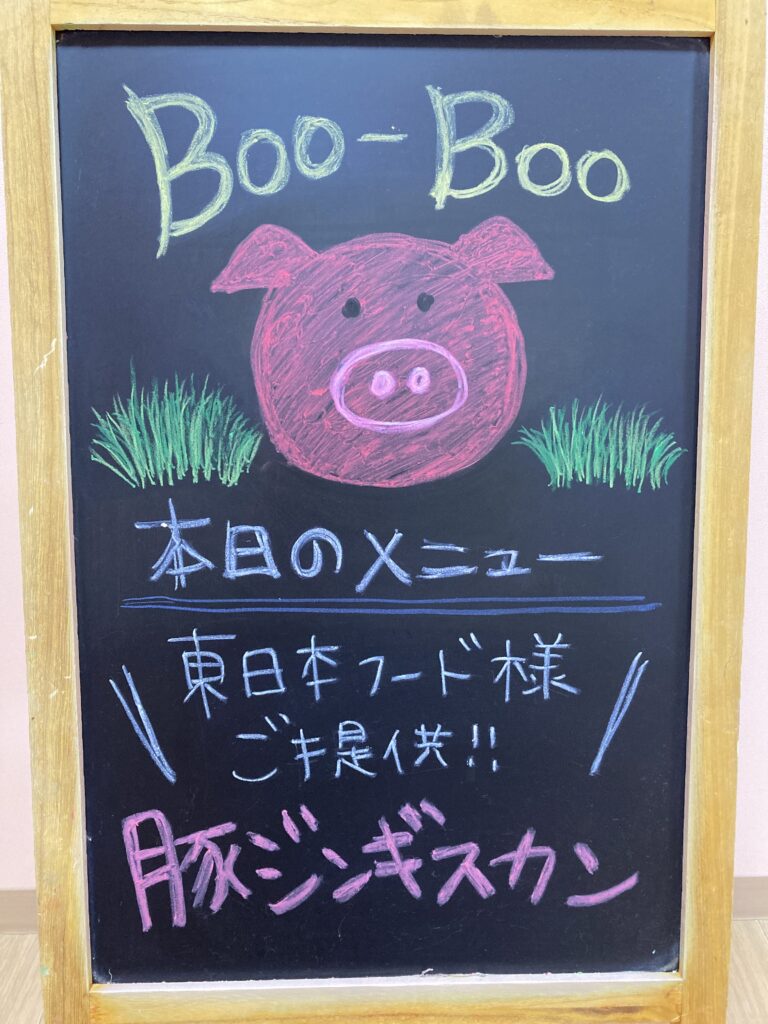 Boo-Boo
本日のメニュー
東日本フード様
ご提供!!
豚ジンギスカン